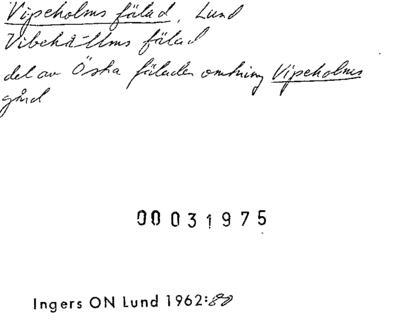 Vipeholms fälad, Lund
Vibehållms fälad
del av Östra fäladen omkring Vipeholms
gård
00031975
Ingers ON Lund 1962:80